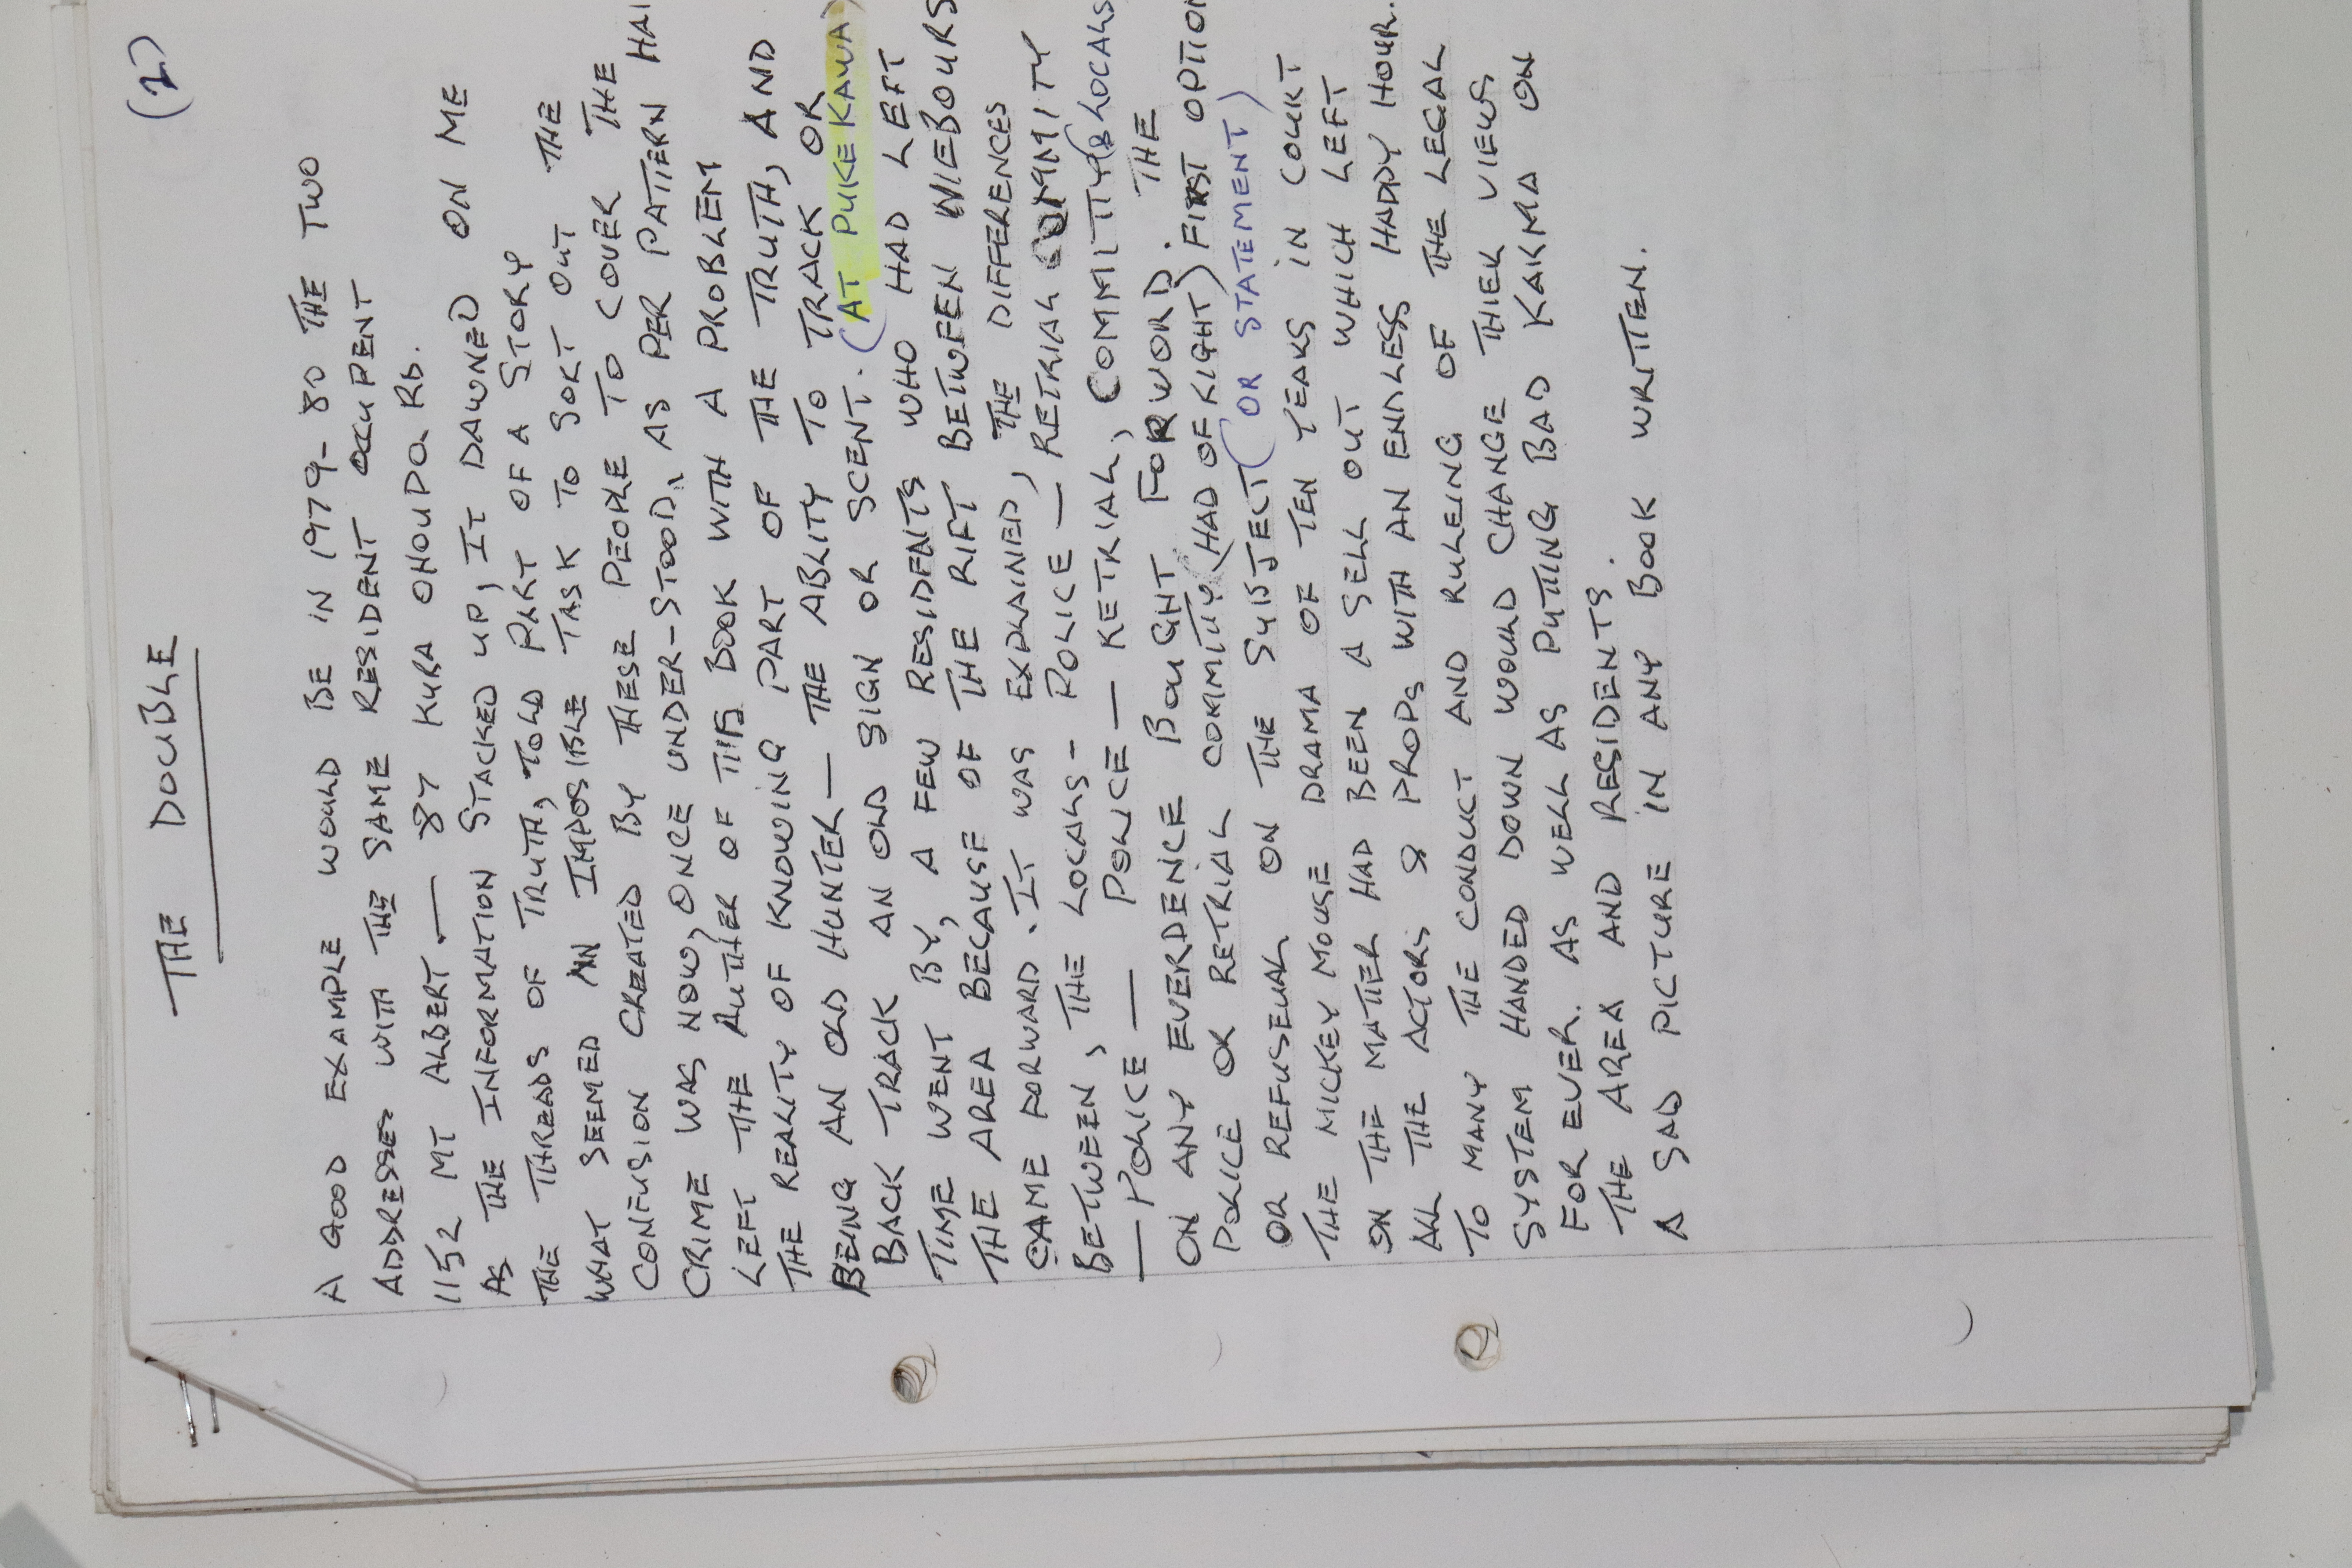 (2)
THE DOUBLE
A GOOD EXAMPLE WOULD BE IN 1979-80 THE TWO
ADDRESSES WITH THE SAME RESIDENT OCCUPENT
1152 MT ALBERT. — 87 KURA OHOUPO. RD.
AS THE INFORMATION STACKED UP, IT DAWNED ON ME
THE THREADS OF TRUTH, TOLD PART OF A STORY
WHAT SEEMED AN IMPOSIBLE TASK TO SORT OUT THE
CONFUSION CREATED BY THESE PEOPLE TO COVER THE
CRIME WAS NOW, ONCE UNDER-STOOD, AS PER PATTERN HAI
LEFT THE AUTHER OF THIS BOOK WITH A PROBLEM
THE REALITY OF KNOWING PART OF THE TRUTH, AND
BEING AN OLD HUNTER — THE ABLITY TO TRACK OR
BACK TRACK AN OLD SIGN OR SCENT. (AT PUKEKAWA)
TIME WENT BY, A FEW RESIDENTS WHO HAD LEFT
THE AREA BECAUSE OF THE RIFT BETWEEN NIEBOURS
CAME FORWARD. IT WAS EXPLAINED, THE DIFFERENCES
BETWEEN, THE LOCALS - POLICE — RETRIAL COMMITY
— POLICE — POLICE — RETRIAL, COMMITY & LOCALS
ON ANY EVERDENCE BOUGHT FORWORD. THE
POLICE OR RETRIAL COMMITY (HAD OF RIGHT) FIRST OPTION
OR REFUSEUAL ON THE SUBJECT (OR STATEMENT)
THE MICKEY MOUSE DRAMA OF TEN YEARS IN COURT
ON THE MATTER HAD BEEN A SELL OUT WHICH LEFT
ALL THE ACTORS & PROPS WITH AN ENDLESS HAPPY HOUR.
TO MANY THE CONDUCT AND RULEING OF THE LEGAL
SYSTEM HANDED DOWN WOULD CHANGE THIER VIEWS
FOR EVER. AS WELL AS PUTING BAD KARMA ON
THE AREA AND RESIDENTS.
A SAD PICTURE IN ANY BOOK WRITTEN.